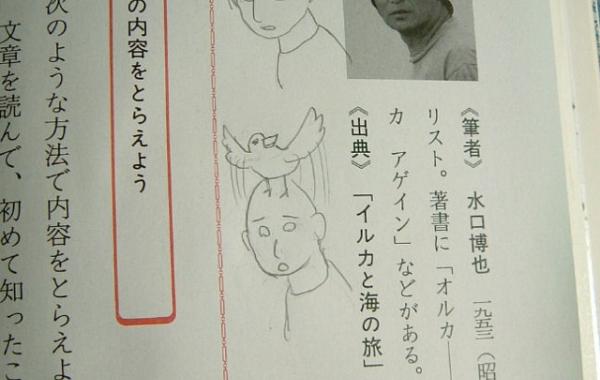 《筆者》 水口博也 一九五三(昭
リスト。著書に「オルカ—
カ アゲイン」などがある。
《出典》 「イルカと海の旅」
の内容をとらえよう
次のような方法で内容をとらえよ
文章を読んで、初めて知ったこ